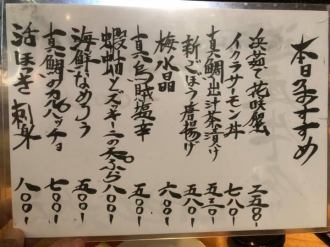 本日のおすすめ
浜茹で花咲蟹 二五〇〇-
イクラサーモン丼 七八〇-
真鯛出汁茶漬け 五三〇-
新ごぼう唐揚げ 五八〇-
梅水晶 六〇〇-
真烏賊塩辛 五〇〇-
蝦蛄とズッキーニの天ぷら 八〇〇-
海鮮なめろう 五〇〇-
真鯛のカルパッチョ 七〇〇-
活ほっき刺身 八〇〇-